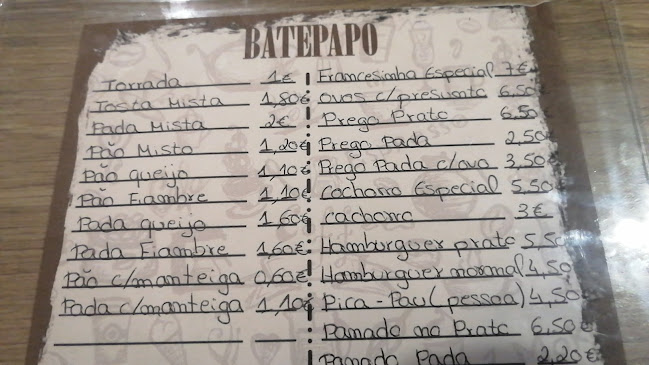 BATEPAPO
Torrada 1€
Tosta Mista 1,80€
Pada Mista 2€
Pão Misto 1,20€
Pão queijo 1,10€
Pão Fiambre 1,10€
Pada queijo 1,60€
Pada Fiambre 1,60€
Pão c/manteiga 0,60€
Pada c/manteiga 1,10€
Francesinha Especial 7€
ovos c/presunto 6,50
Prego Prato 6,50
Prego Pada 2,50
Prego Pada c/ovo 3,50
Cachorro Especial 5,50
cachorro 3€
Hamburguer prato 5,50
Hamburguer normal 4,50
Pica-Pau (pessoa) 4,50
Panado no Prato 6,50€
Panado Pada 2,20€